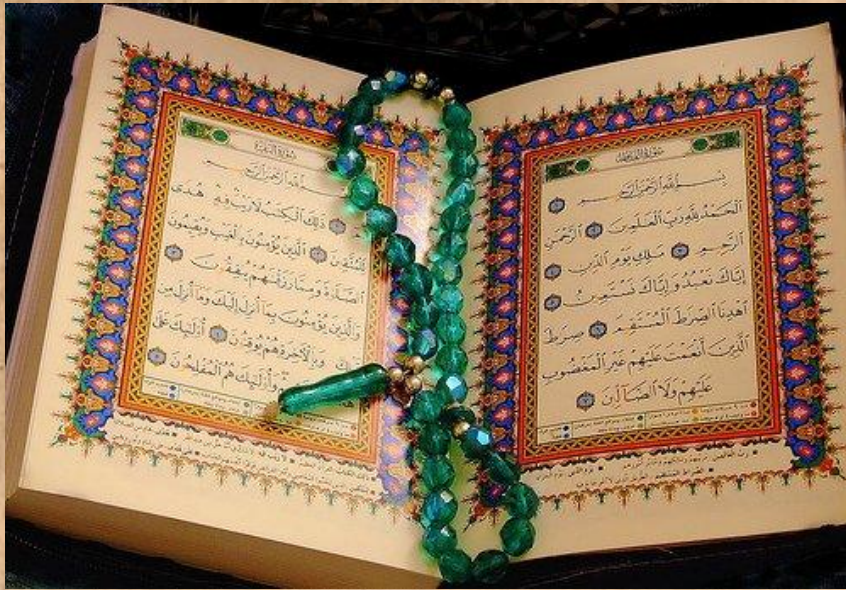 سُورَةُ الفَاتِحَةِ
بِسْمِ ٱللَّهِ ٱلرَّحْمَٰنِ ٱلرَّحِيمِ
ٱلْحَمْدُ لِلَّهِ رَبِّ ٱلْعَٰلَمِينَ ٱلرَّحْمَٰنِ
ٱلرَّحِيمِ مَٰلِكِ يَوْمِ ٱلدِّينِ
إِيَّاكَ نَعْبُدُ وَإِيَّاكَ نَسْتَعِينُ
ٱهْدِنَا ٱلصِّرَٰطَ ٱلْمُسْتَقِيمَ صِرَٰطَ
ٱلَّذِينَ أَنْعَمْتَ عَلَيْهِمْ غَيْرِ ٱلْمَغْضُوبِ
عَلَيْهِمْ وَلَا ٱلضَّآلِّينَ
سُورَةُ البَقَرَةِ
ٱللَّهِ ٱلرَّحْمَٰنِ ٱلرَّحِيمِ
ذَٰلِكَ ٱلْكِتَٰبُ لَا رَيْبَ فِيهِ هُدًى
لِّلْمُتَّقِينَ ٱلَّذِينَ يُؤْمِنُونَ بِٱلْغَيْبِ وَيُقِيمُونَ
ٱلصَّلَوٰةَ وَمِمَّا رَزَقْنَٰهُمْ يُنفِقُونَ
وَٱلَّذِينَ يُؤْمِنُونَ بِمَآ أُنزِلَ إِلَيْكَ وَمَآ أُنزِلَ مِن
وَبِٱلْأَخِرَةِ هُمْ يُوقِنُونَ أُو۟لَٰٓئِكَ عَلَىٰ
وَأُو۟لَٰٓئِكَ هُمُ ٱلْمُفْلِحُونَ